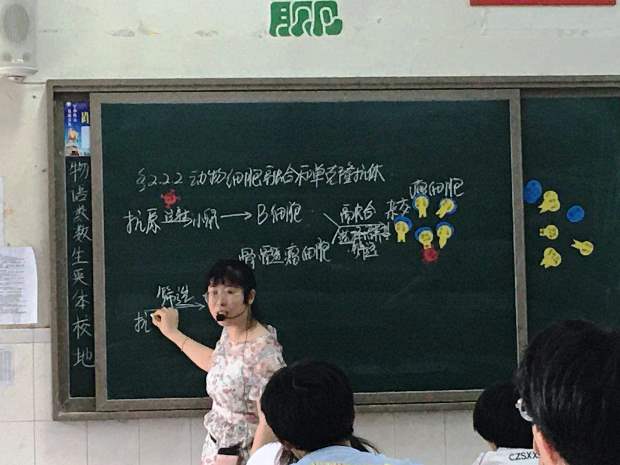 §2.2.2 动物细胞融合和单克隆抗体
抗原 注射 小鼠 → B细胞
融合
杂交
瘤细胞
骨髓瘤细胞
筛选
筛选
抗
物语数生英体校地
CZSXX